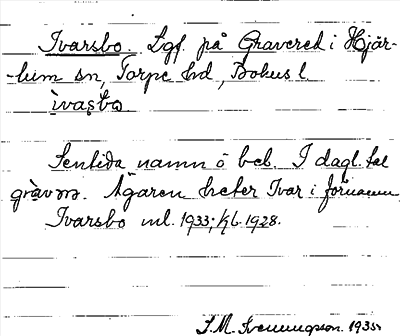 Ivarsbo. Lgf. på Gravered i Hjär-
-lum sn, Torpe hd, Bohusl
ìvaṣbo
Sentida namn å beb. I dagl. tal
Ägaren heter Ivar i förnamn,
Ivarsbo ml. 1933; kb. 1928.
1935.